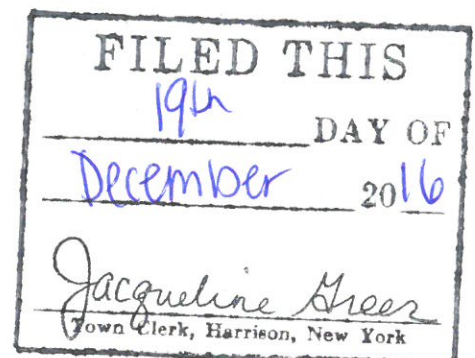 FILED THIS
19th
DAY OF
December 2016
Jacqueline Greer
Town Clerk, Harrison, New York